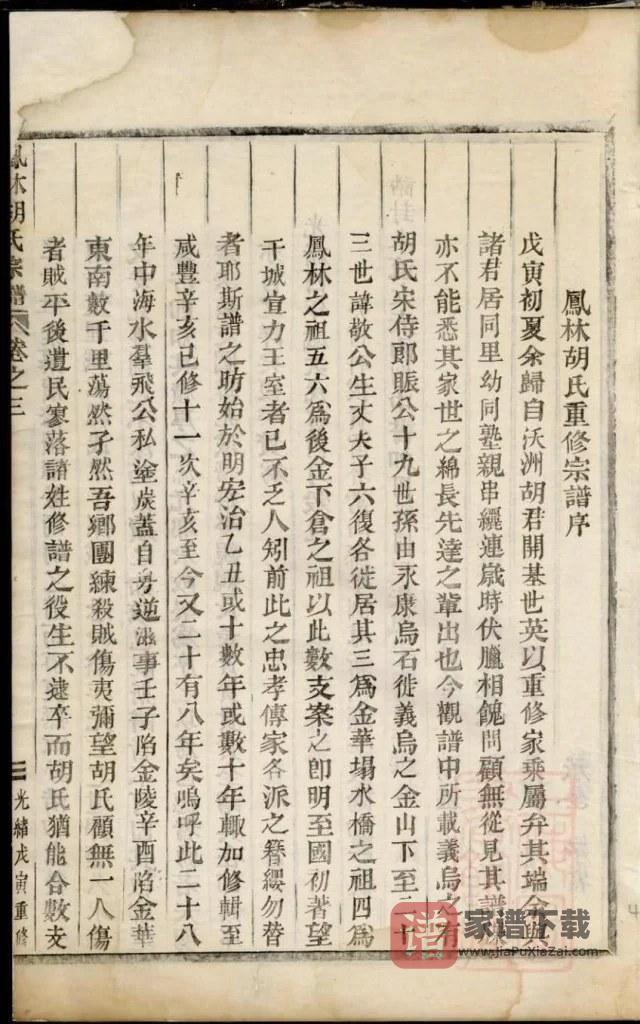 鳳林胡氏重修宗譜序
戊寅初夏余歸自沃洲胡君開基世英以重修家乘屬弁其端余與
諸君居同里幼同塾親串纒連歲時伏臘相餽問顧無從見其譜
亦不能悉其家世之綿長先達之輩出也今觀譜中所載義烏之有
胡氏宋侍郎賑公十九世孫由永康烏石徙義烏之金山下至二十
三世諱敬公生丈夫子六復各徙居其三爲金華塌水橋之祖四爲
鳳林之祖五六爲後金下倉之祖以此數支案之卽明至國初著望
干城宣力王室者已不乏人矧前此之忠孝傳家各派之簪纓勿替
者耶斯譜之昉始於明宏治乙丑或十數年或數十年輒加修輯至
咸豐辛亥已修十一次辛亥至今又二十有八年矣嗚呼此二十八
年中海水羣飛公私塗炭蓋自粤逆滋事壬子陷金陵辛酉陷金華
東南數千里蕩然孑然吾鄉團練殺賊傷夷彌望胡氏顧無一人傷
者賊平後遺民寥落諸姓修譜之役生不逮卒而胡氏猶能合數支
鳳林胡氏宗譜 卷之三
光緒戊寅重修
譜
家谱下载
www.jiaPuXiaZai.com